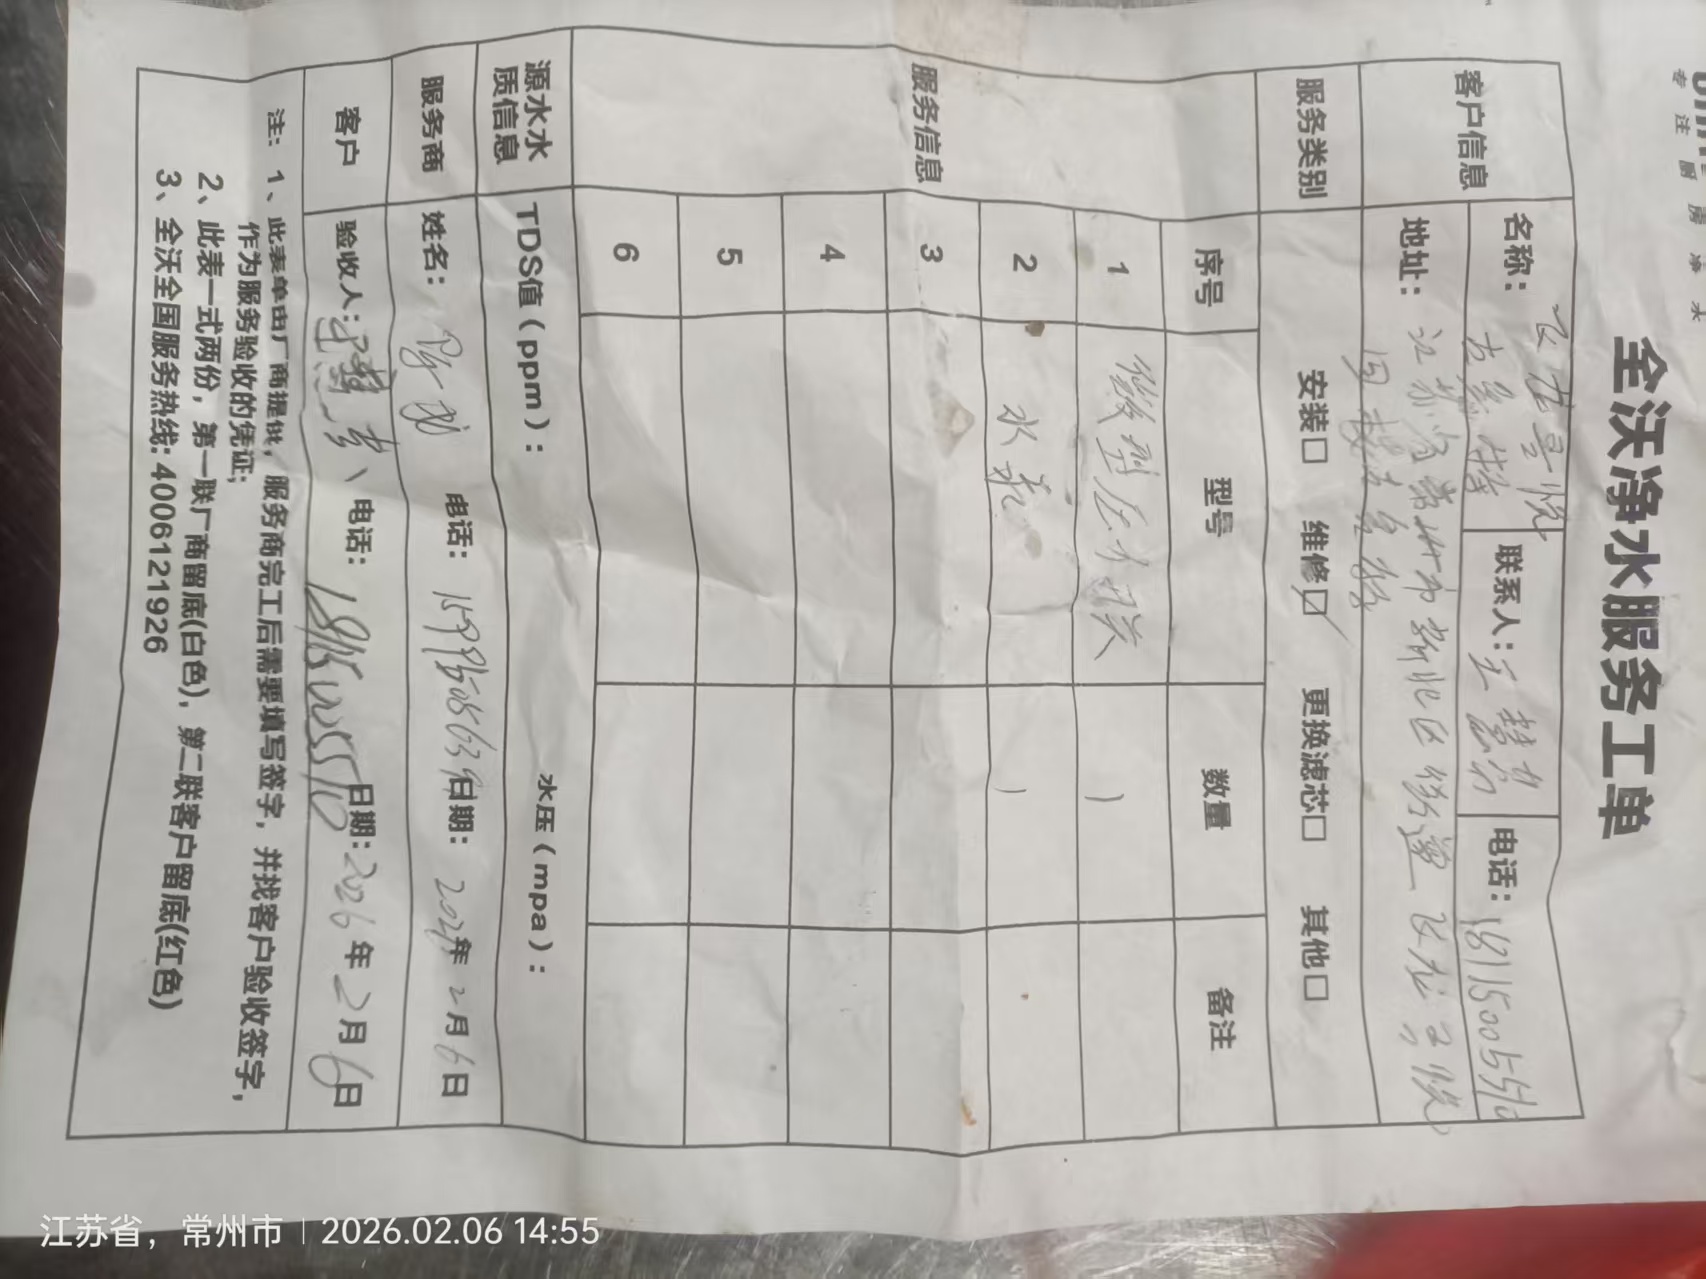 专注厨房净水
全沃净水服务工单
客户信息 名称： 联系人：王慧芳 电话：18115005510
地址：江苏省常州市新北区
服务类别 安装□ 维修☑ 更换滤芯□ 其他□
服务信息 序号 型号 数量 备注
1 微型压力开关 1
2 水泵 1
3
4
5
6
源水水质信息 TDS值（ppm）： 水压（mpa）：
服务商 姓名： 电话： 日期：2026年2月6日
客户 验收人：王慧芳 电话：18115005510 日期：2026年2月6日
注：1、此表单由厂商提供，服务商完工后需要填写签字，并找客户验收签字，
作为服务验收的凭证；
2、此表一式两份，第一联厂商留底(白色)，第二联客户留底(红色)
3、全沃全国服务热线：4006121926
江苏省，常州市 | 2026.02.06 14:55